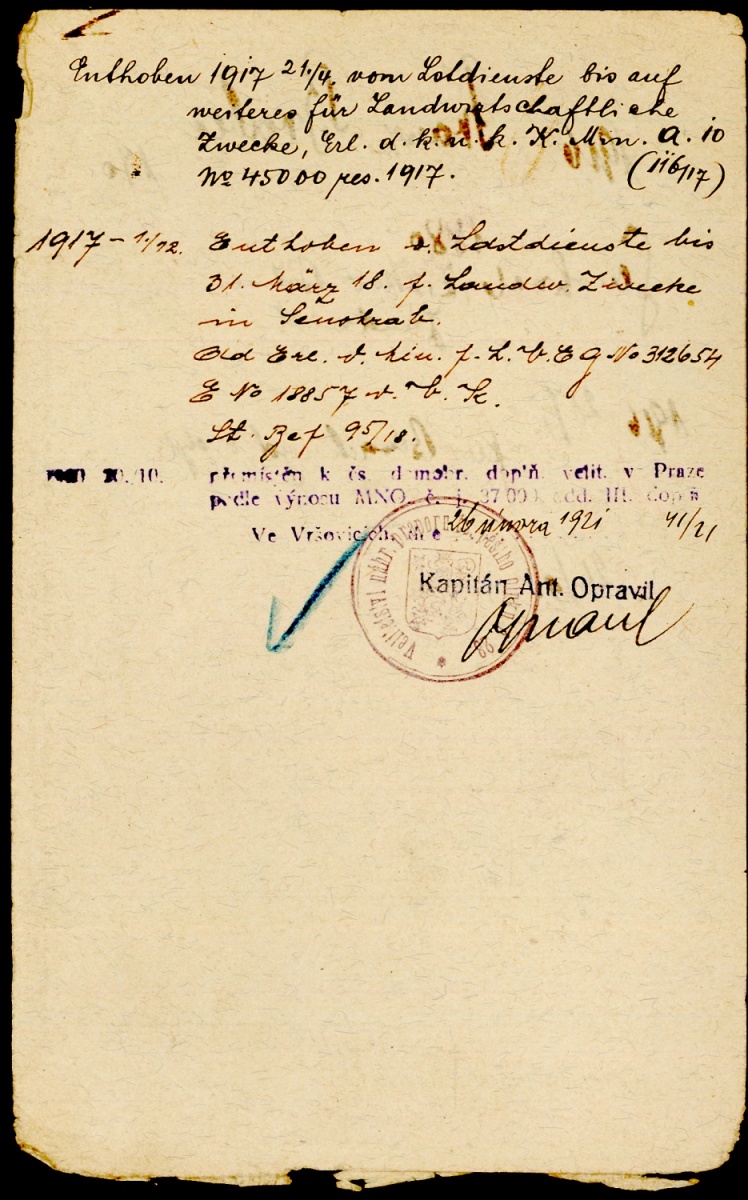 Enthoben 1917 21./4. vom Lstdienste bis auf
weiteres für Landwirtschaftliche
Zwecke, Erl. d. k. u. k. K. Min. A. 10
No 45000 res. 1917. (116/17)
1917 - 1./12. Enthoben v. Ldstdienste bis
31. März 18. f. Landw. Zwecke
in Senohrab.
Erl. d. Min. f. L. V. No 312654
E No 18857 v. B. K.
St. Bef 95/18.
20./10. přemístěn k čs. domobr. doplň. velit. v Praze
podle výnosu MNO. č. j. 37.000 odd. III. doplň
Ve Vršovicích, dne 26 února 1921 41/21
Kapitán Ant. Opravil
Opravil